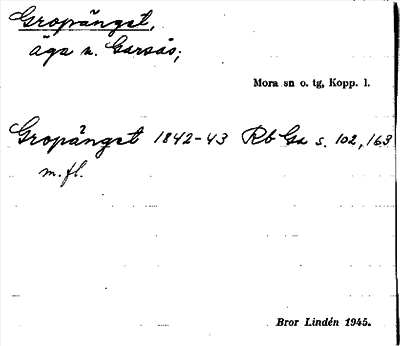 Gropängst,
äga n. Garsås;
Mora sn o. tg, Kopp. l.
Gropängst 1842-43 Rb Ga s. 102, 163
m.fl.
Bror Lindén 1945.